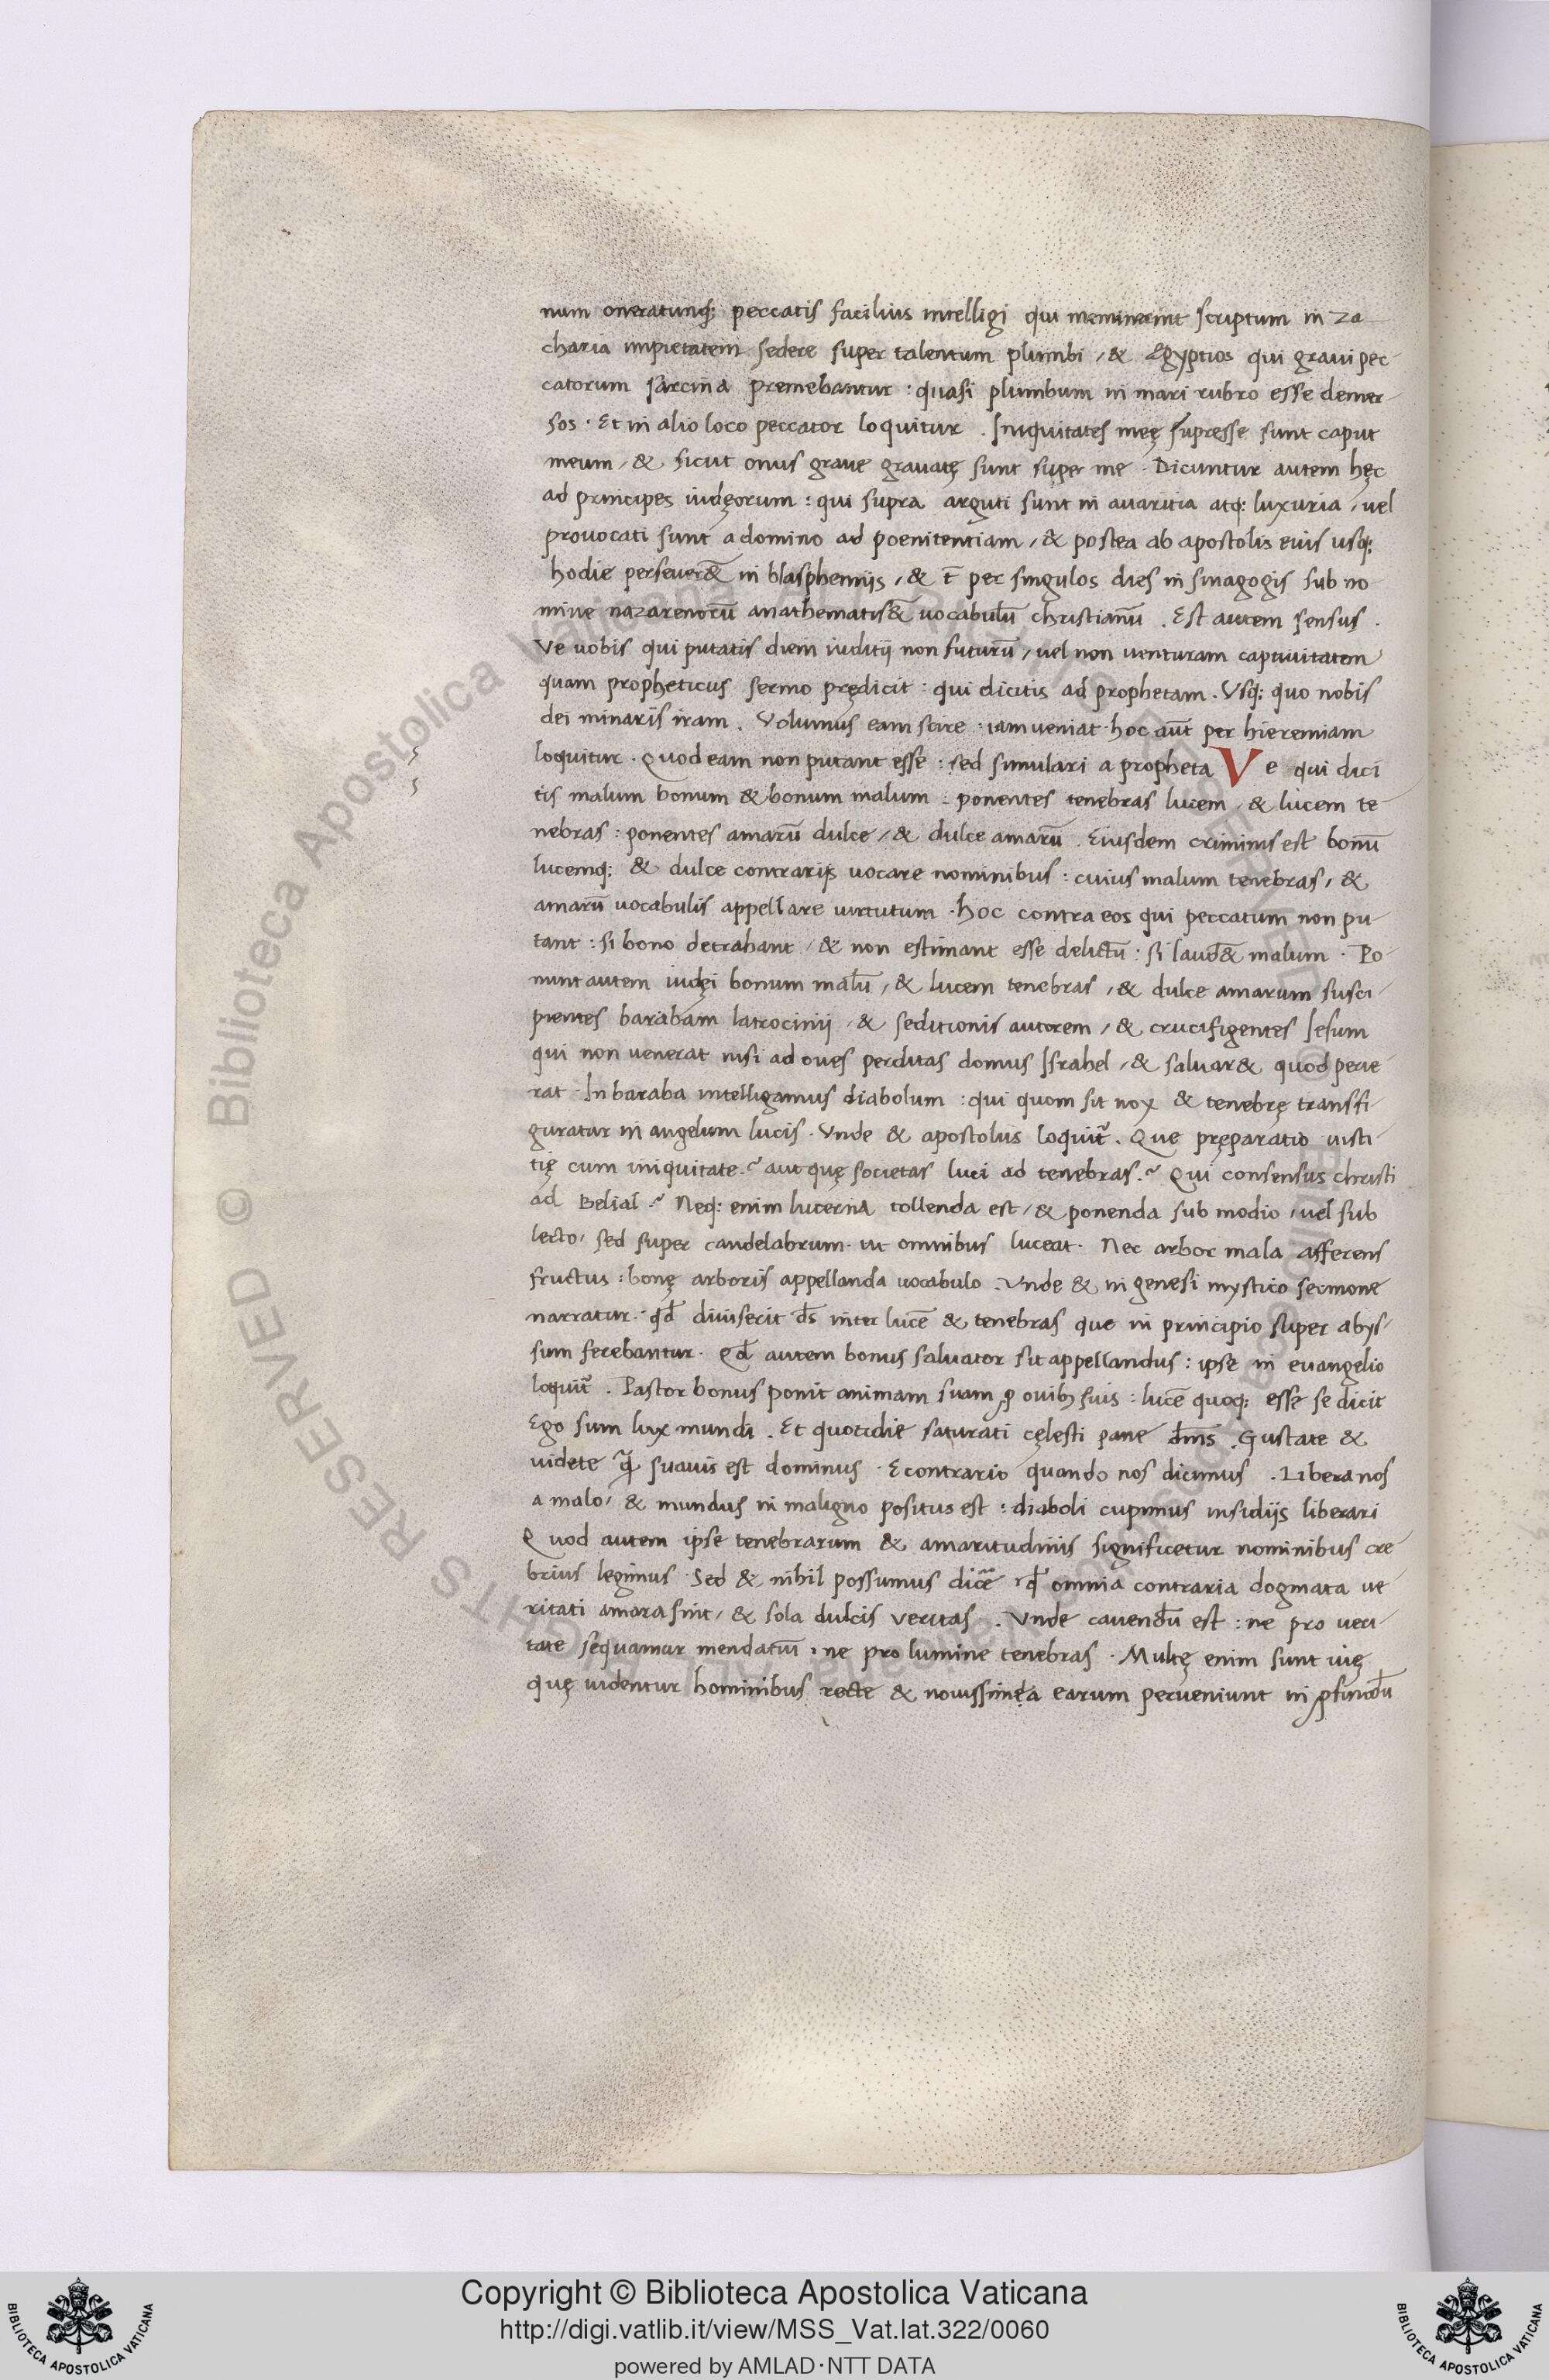 num oneratumq; peccatis facilius intelligi qui meminerint scriptum in Za
charia impietatem sedere super talentum plumbi, & Ægyptios qui graui pec-
catorum sarcina premebantur : quasi plumbum in mari rubro esse demer-
sos . Et in alio loco peccator loquitur . Iniquitates meę supresse sunt caput
meum, & sicut onus graue grauatę sunt super me . Dicuntur autem hęc
ad principes iudęorum : qui supra arguti sunt in auaritia atq; luxuria, uel
prouocati sunt a domino ad poenitentiam, & postea ab apostolis eius usq;
hodie perseuer&̄ in blasphemijs, & t̄ per singulos dies in sinagogis sub no
mine nazarenorū anathematis&̄ uocabulū christianū . Est autem sensus .
Ve uobis qui putatis diem iuditij non futurū, uel non uenturam captiuitatem
quam propheticus sermo prędicit : qui dicitis ad prophetam . Vsq; quo nobis
dei minaris iram . Volumus eam scire : iam ueniat . hoc aūt per hieremiam
loquitur . Quod eam non putant esse : sed simulari a propheta Ve qui dici
tis malum bonum & bonum malum : ponentes tenebras lucem, & lucem te-
nebras : ponentes amarū dulce, & dulce amarū . Eiusdem criminis est bonū
lucemq; & dulce contrarijs uocare nominibus : cuius malum tenebras, &
amarū uocabulis appellare uirtutum . hoc contra eos qui peccatum non pu-
tant : si bono detrahant, & non estimant esse delictū : si laud&̄ malum . Po-
nunt autem iudęi bonum malū, & lucem tenebras, & dulce amarum susci-
pientes barabam latrocinij, & seditionis autorem, & crucifigentes Iesum
qui non uenerat nisi ad oues perditas domus Israhel, & saluar& quod perie-
rat . In baraba intelligamus diabolum : qui quom sit nox & tenebrę transfi-
guratur in angelum lucis . Vnde & apostolus loquit᷑ . Que pręparatio iusti-
tię cum iniquitate ? aut quę societas luci ad tenebras ? Qui consensus christi
ad Belial ? Neq; enim lucerna tollenda est, & ponenda sub modio, uel sub
lecto, sed super candelabrum . ut omnibus luceat . Nec arbor mala afferens
fructus : bonę arboris appellanda uocabulo . Vnde & in genesi mystico sermone
narratur . qđ diuiserit ds̄ inter lucē & tenebras que in principio super abys-
sum ferebantur . Qđ autem bonus saluator sit appellandus : ipse in euangelio
loquit᷑ . Pastor bonus ponit animam suam ꝓ ouibꝫ suis : lucē quoq; esse se dicit
Ego sum lux mundi . Et quotidie saturati cęlesti pane dm̄s . Gustate &
uidete q̃ suauis est dominus . Econtrario quando nos dicimus . Libera nos
a malo, & mundus in maligno positus est : diaboli cupimus insidijs liberari
Quod autem ipse tenebrarum & amaritudinis significetur nominibus cre
brius legimus . Sed & nihil possumus dicẽ, qđ omnia contraria dogmata ue
ritati amara sint, & sola dulcis ueritas . Vnde cauendū est : ne pro ueri-
tate sequamur mendatiū, ne pro lumine tenebras . Multę enim sunt uię
quę uidentur hominibus recte & nouissima earum perueniunt in ꝓfundū
Copyright © Biblioteca Apostolica Vaticana
http://digi.vatlib.it/view/MSS_Vat.lat.322/0060
powered by AMLAD·NTT DATA